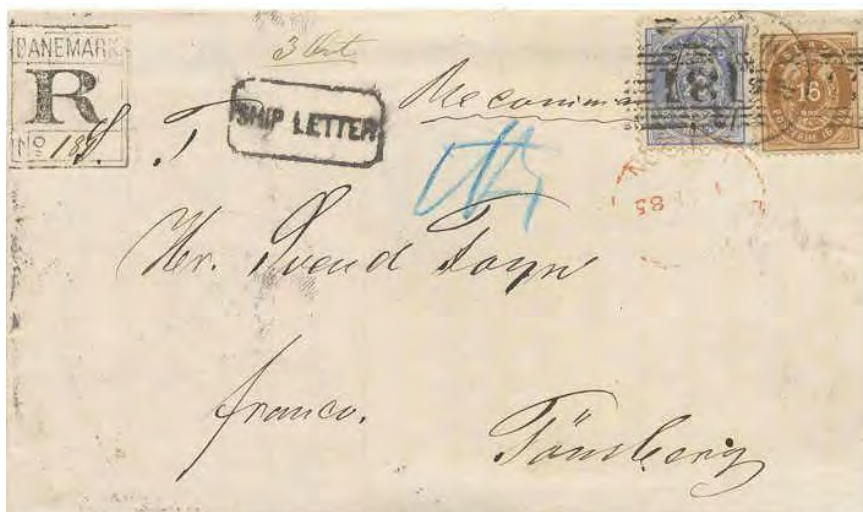 DANEMARK
R
No 189
3 Ort
SHIP LETTER
S. T.
181
16
85
Hr. Svend Foyn
franco.
Tönsberg